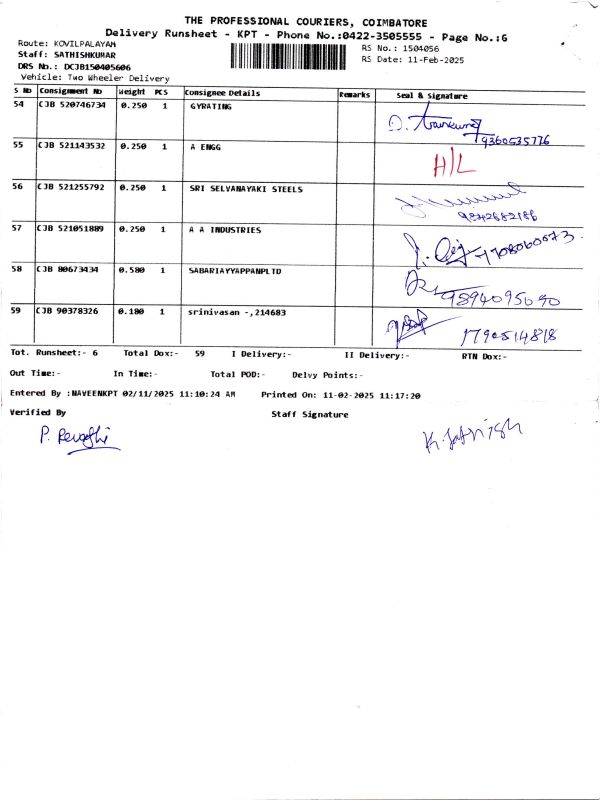 THE PROFESSIONAL COURIERS, COIMBATORE
Delivery Runsheet - KPT - Phone No.:0422-3505555 - Page No.:6
Route: KOVILPALAYAM
RS No.: 1504056
Staff: SATHISHKUMAR
RS Date: 11-Feb-2025
DRS No.: DCJB150405606
Vehicle: Two Wheeler Delivery
S No Consignment No Weight PCS Consignee Details Remarks Seal & Signature
54 CJB 520746734 0.250 1 GYRATING
9360535776
55 CJB 521143532 0.250 1 A ENGG H/L
56 CJB 521255792 0.250 1 SRI SELVANAYAKI STEELS
9842682186
57 CJB 521051889 0.250 1 A A INDUSTRIES
7708060073
58 CJB 80673434 0.580 1 SABARIAYYAPPANPLTD
9894095690
59 CJB 90378326 0.180 1 srinivasan -,214683
7790514818
Tot. Runsheet:- 6 Total Dox:- 59 I Delivery:- II Delivery:- RTN Dox:-
Out Time:- In Time:- Total POD:- Delvy Points:-
Entered By :NAVEENKPT 02/11/2025 11:10:24 AM Printed On: 11-02-2025 11:17:20
Verified By Staff Signature
P. Revathi K. Sathish